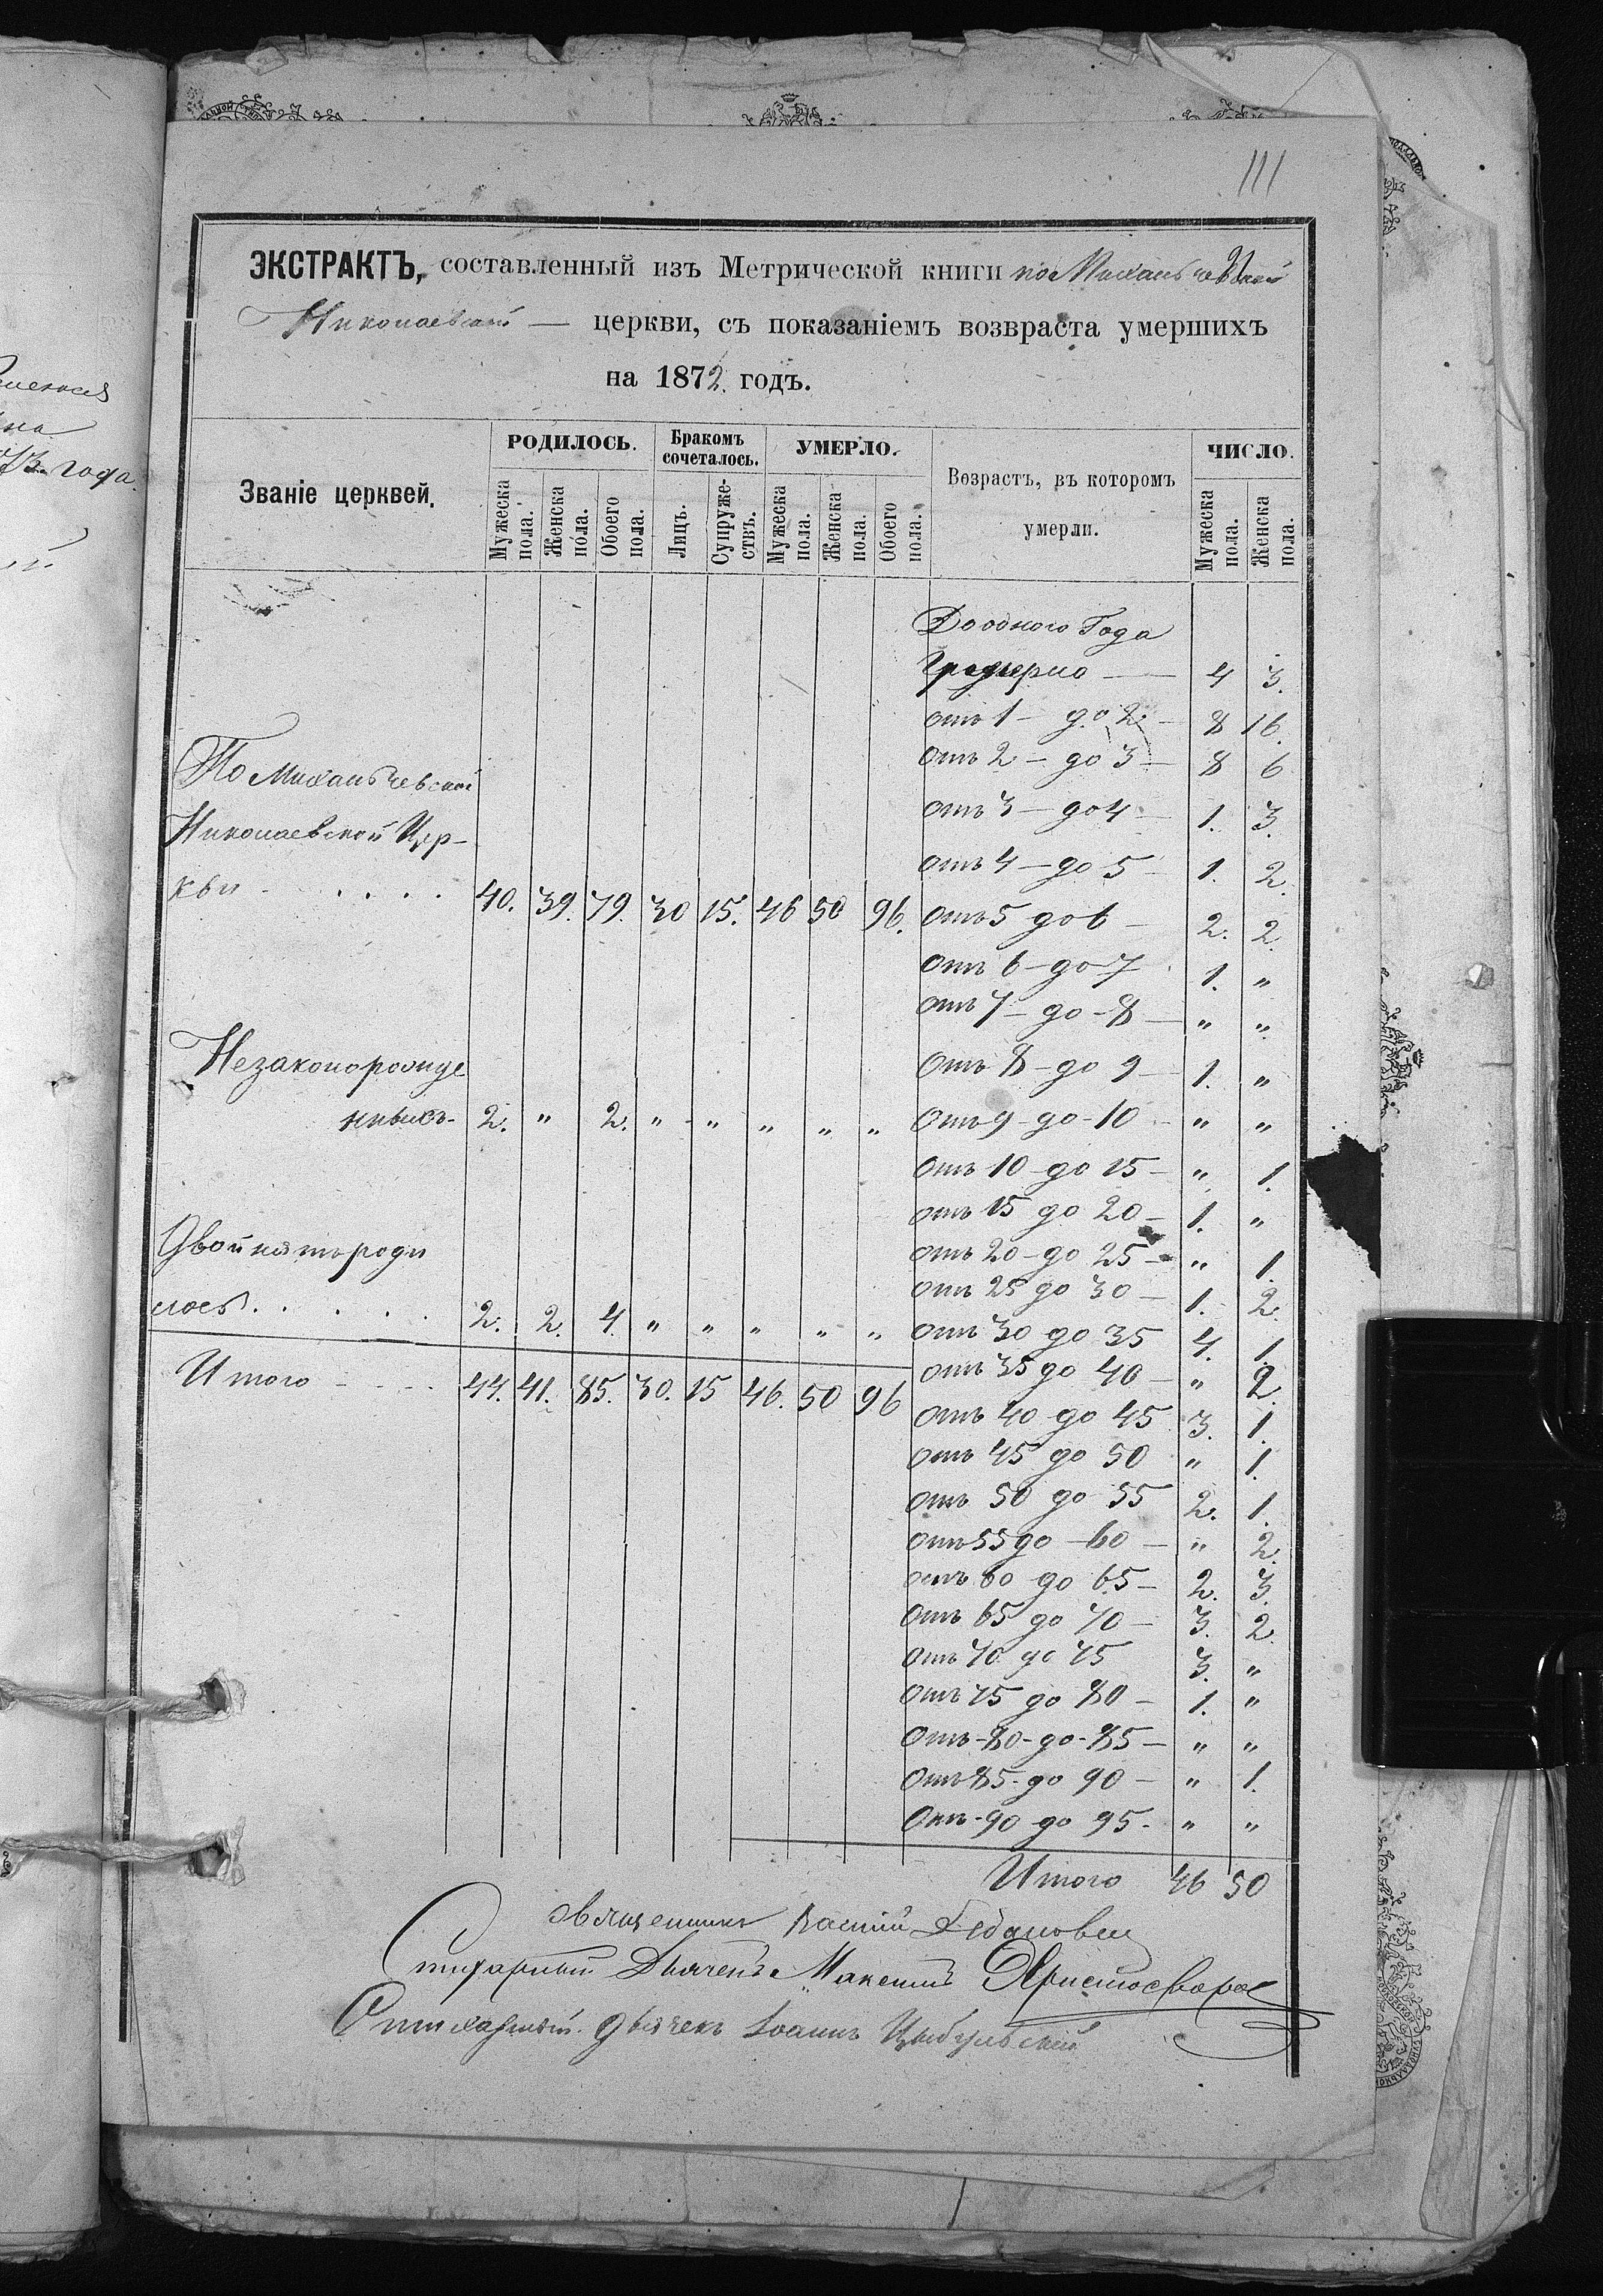 111
ЭКСТРАКТЪ, составленный изъ Метрической книги по Михальчевской
Николаевской — церкви, съ показаніемъ возвраста умершихъ
на 1872 годъ.
Званіе церквей.
РОДИЛОСЬ.
Бракомъ сочеталось.
УМЕРЛО.
Возрастъ, въ которомъ умерли.
ЧИСЛО.
Мужеска пола.
Женска пола.
Обоего пола.
Лицъ.
Супруже-ствъ.
Мужеска пола.
Женска пола.
Обоего пола.
Мужеска пола.
Женска пола.
До одного Года
— 4 3.
отъ 1 — до 2 — 8 16.
отъ 2 — до 3 — 8 6
отъ 3 — до 4 — 1. 3.
отъ 4 — до 5 — 1. 2.
По Михальчевской
Николаевской Цер-
кви - . . . . 40. 39. 79. 30 15. 46 50 96.
отъ 5 до 6 — 2. 2.
отъ 6 — до 7 1. "
отъ 7 — до - 8 — " "
отъ 8 — до 9 — 1. "
Незаконорожде
нныхъ - 2. " 2. " " " " "
отъ 9 - до - 10 - " "
отъ 10 - до 15 - " 1.
отъ 15 до 20 - 1. "
отъ 20 - до 25 - " 1.
отъ 25 до 30 — 1. 2.
Двойнятъ роди
лось . . . . 2. 2. 4. " " " " "
отъ 30 до 35 4. 1.
отъ 35 до 40 — " 2.
Итого - - - - 44. 41. 85. 30. 15 46. 50 96
отъ 40 до 45 3. 1.
отъ 45 до 50 " 1.
отъ 50 до 55 2. 1.
отъ 55 до — 60 — " 2.
отъ 60 до 65 — 2. 3.
отъ 65 до 70 — 3. 2.
отъ 70 до 75 3. "
отъ 75 до 80 - 1. "
отъ - 80 - до - 85 — " "
отъ 85 - до 90 — " 1.
отъ - 90 до 95 - " "
Итого 46 50
священникъ
Дьячекъ Максимъ Христофоровъ
дьячекъ Іоаннъ Цыбульскій
года.